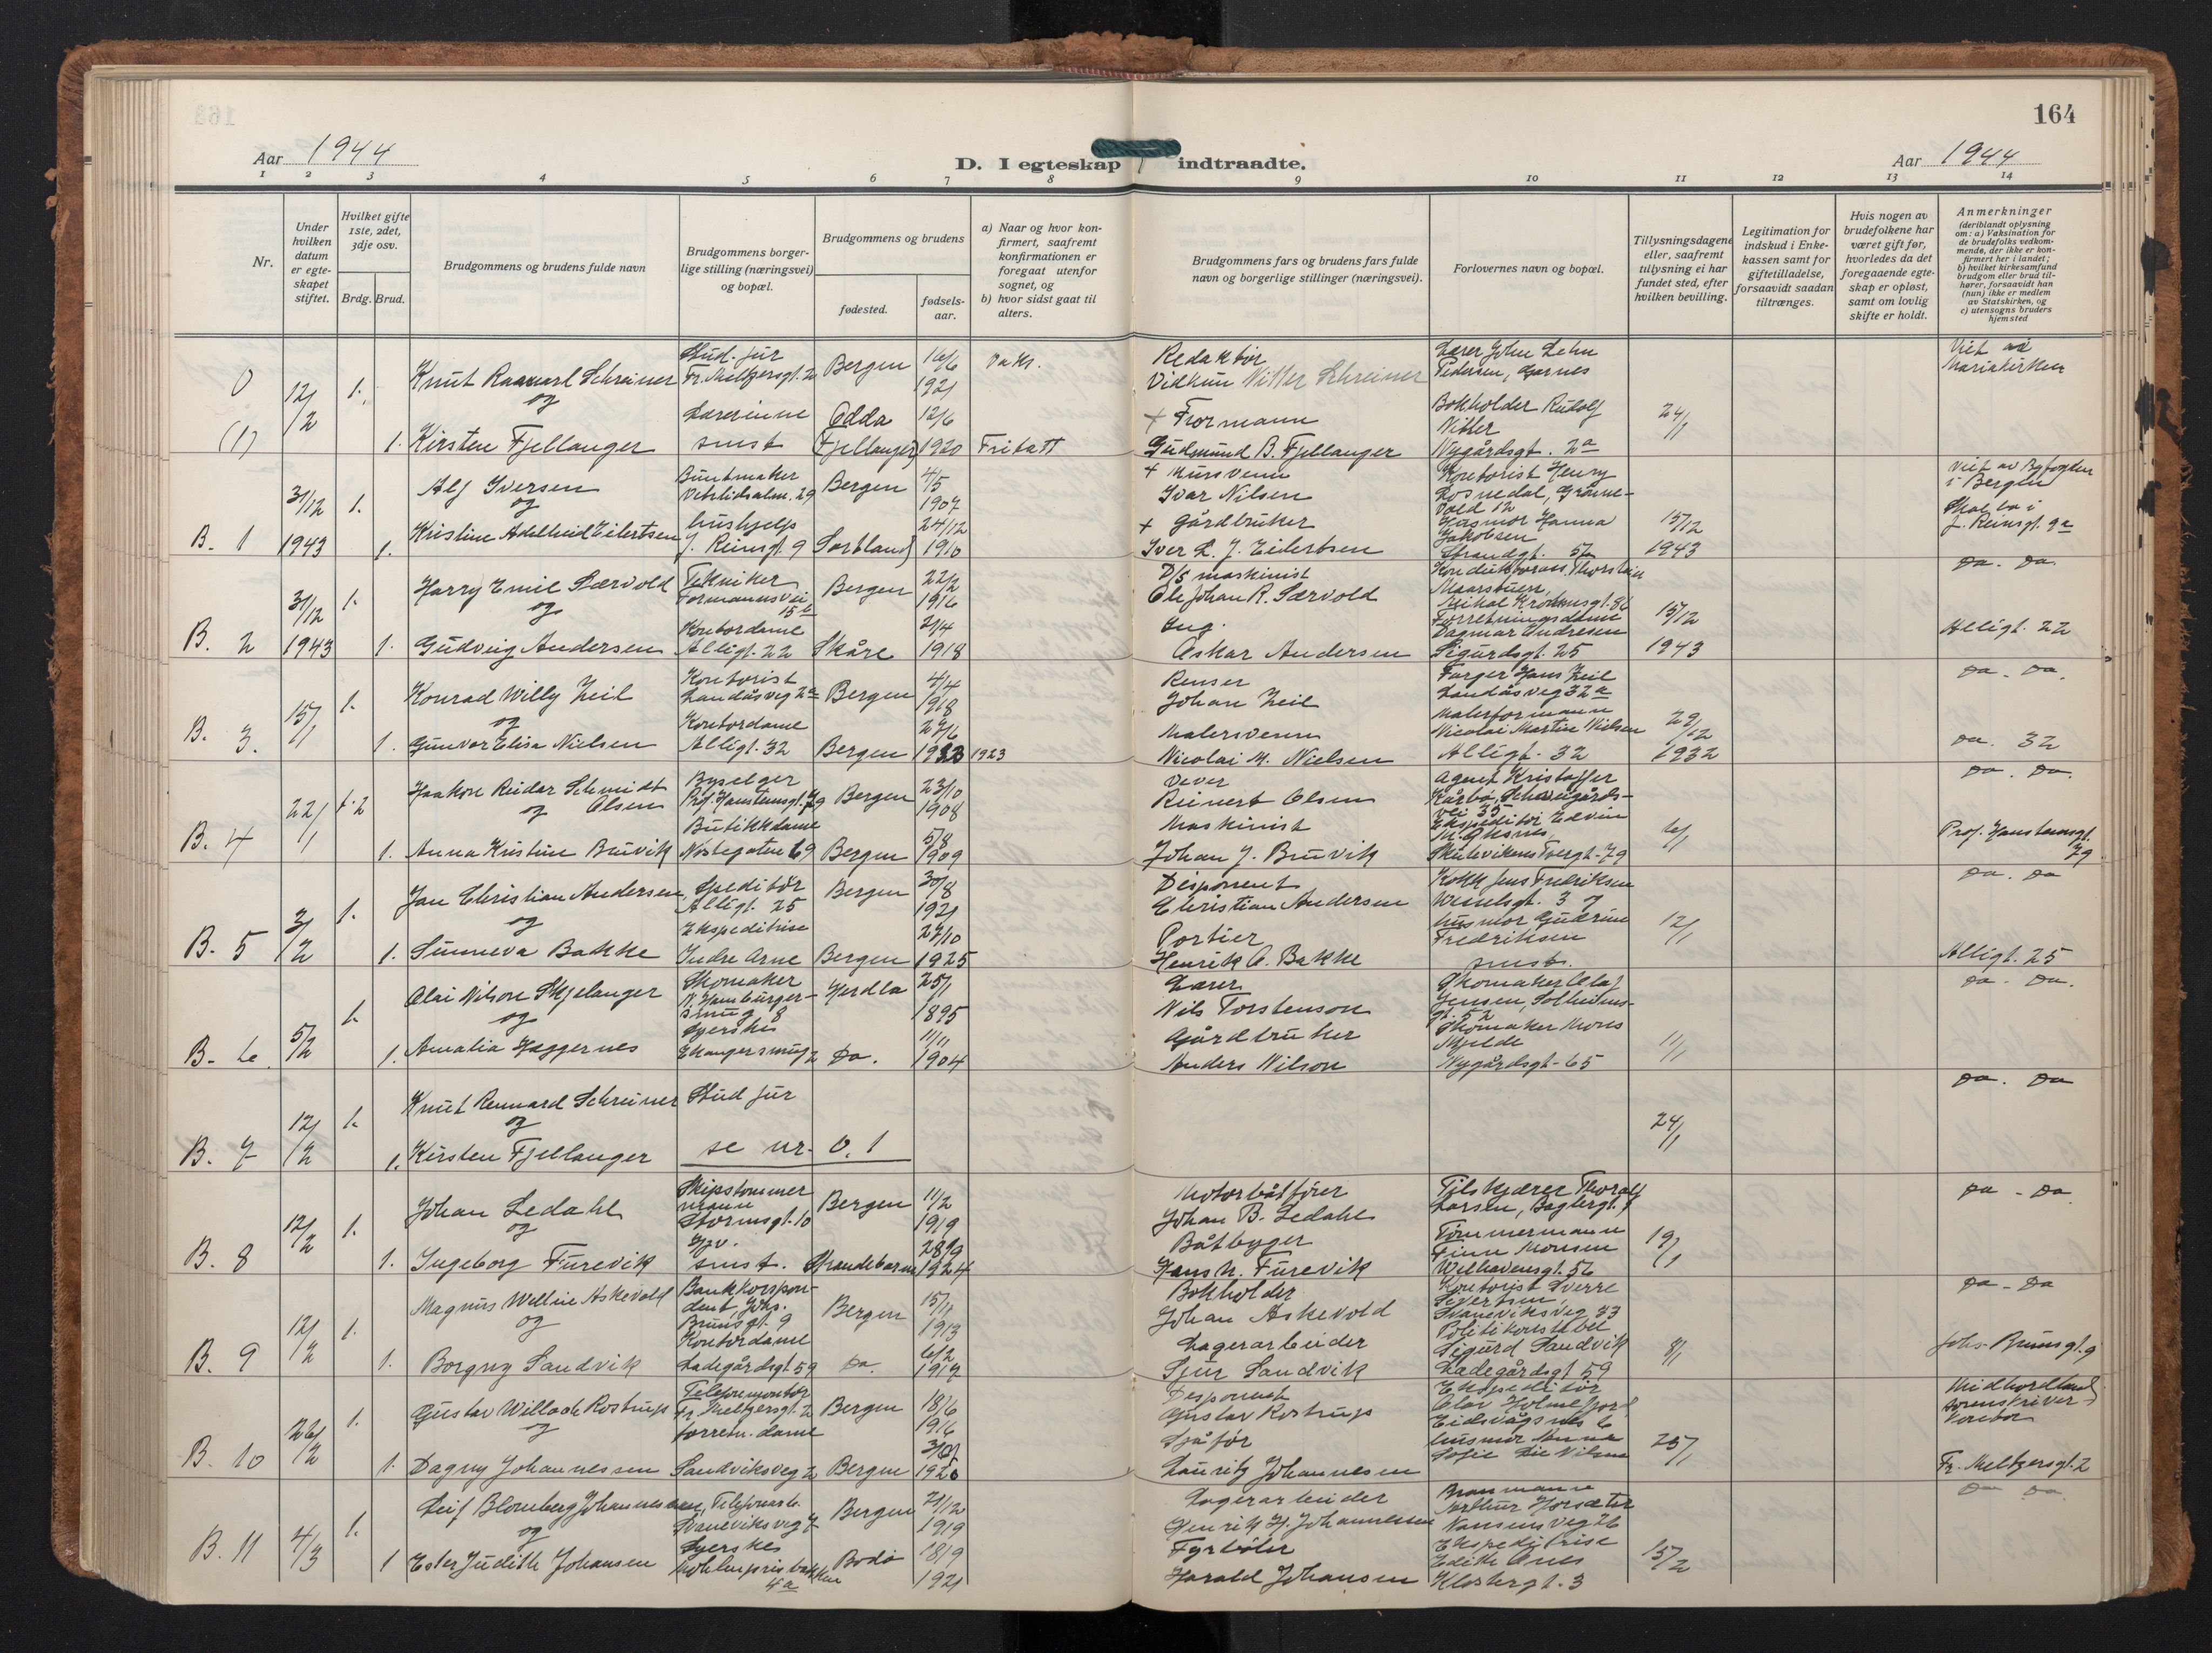 164
Aar 1944
D. I egteskap indtraadte.
Aar 1944
1 2 3 4 5 6 7 8 9 10 11 12 13 14
Nr.
Under hvilken datum er egteskapet stiftet.
Hvilket gifte 1ste, 2det, 3dje osv.
Brdg. Brud.
Brudgommens og brudens fulde navn
Brudgommens borgerlige stilling (næringsvei) og bopæl.
Brudgommens og brudens
fødested.
fødselsaar.
a) Naar og hvor konfirmert, saafremt konfirmationen er foregaat utenfor sognet, og
b) hvor sidst gaat til alters.
Brudgommens fars og brudens fars fulde navn og borgerlige stillinger (næringsvei).
Forlovernes navn og bopæl.
Tillysningsdagene eller, saafremt tillysning ei har fundet sted, efter hvilken bevilling.
Legitimation for indskud i Enkekassen samt for giftetilladelse, forsaavidt saadan tiltrænges.
Hvis nogen av brudefolkene har været gift før, hvorledes da det foregaaende egteskap er opløst, samt om lovlig skifte er holdt.
Anmerkninger (deriblandt oplysning om: a) Vaksination for de brudefolks vedkommende, der ikke er konfirmert her i landet; b) hvilket kirkesamfund brudgom eller brud tilhører, forsaavidt han (hun) ikke er medlem av Statskirken, og c) utensogns bruders hjemsted
0 (1) 12/2 1. Knut Schreiner Stud. jur Fr. Meltzersgt. 2 Bergen 16/6 1921 Vaks. Redaktør Vidkun Schreiner Lærer John Lehn Pedersen, Garnes Viet Mariakirken
og
1. Kirsten Fjellanger Lærerinne smst Odda (Fjellanger) 12/6 1920 Fritatt + Formann Gudmund B. Fjellanger Bokholder Rudolf Nygårdsgt. 2a 24/1
B. 1 31/12 1943 1. Alf Iversen Buntmaker Vetrlidsalm. 29 Bergen 4/5 1907 + Mursvenn Ivar Nilsen Kontorist Henry viet av Byfogden i Bergen
og
1. Kristine Adelheid Eilertsen hushjelp J. Reinsgt. 9 Sortland 24/12 1910 + Gårdbruker Iver L. J. Eilertsen Husmor Hanna Jakobsen Strandgt. 15/12 1943 Skal bo i J. Reinsgt. 9a
B. 2 31/12 1943 1. Harry Emil Særvold Tekniker Formannsvei 15b Bergen 22/2 1916 D/s maskinist Ole Johan R. Særvold Da. Da.
og
1. Gudveig Andersen Kontordame Alligt. 22 Skåre 2/4 1918 Ing. Oskar Andersen Forretningsdame Dagmar Andresen Sigurdsgt. 25 15/12 1943 Alligt. 22
B. 3. 15/1 1. Konrad Willy Zeil Kontorist Landåsveg 32a Bergen 4/4 1918 Renser Johan Zeil Farger Hans Zeil Landåsveg 32a Da. Da.
og
1. Gunvor Elisa Nielsen Kontordame Alligt. 32 Bergen 27/6 1923 Malersvenn Nicolai M. Nielsen Malerformann Nicolai Martin Nielsen Alligt. 32 29/12 1932 Da. 32
B. 4 22/1 Haakon Reidar Schmidt Olsen Byselger Prof. Hansteensgt. 79 Bergen 23/10 1908 Vever Reinert Olsen Agent Kristoffer Da. Da.
og
1. Anna Kristine Bruvik Butikkdame Nøstegaten 69 Bergen 5/8 1909 Maskinist Johan J. Bruvik Ekspeditør Edvin 6/1 Prof. Hansteensgt. 79
B. 5 3/2 1. Jan Christian Andersen Speditør Alligt. 25 Bergen 30/8 1921 Disponent Christian Andersen Kokk Jens Fredriksen Da. Da
og
1. Sunneva Bakke Ekspeditrise Indre Arne Bergen 27/10 1925 Portier Henrik O. Bakke husmor Gudrun Fredriksen smst. 12/1 Alligt. 25
B. 6 5/2 1. Olai Nilson Skjelanger Skomaker N. Hamburgersmug 8 Herdla 25/1 1895 Lærer Nils Torstenson Skomaker Olaf Jensen, Solheimsgt. 52 Da. Da.
og
1. Amalia Haggernes Syerske Da. 11/11 1904 Gårdbruker Anders Nilson Skomaker Mons Mjelde Nygårdsgt. 65 11/1
B. 7 12/2 1. Knut Schreiner Stud jur Da. Da
og
1. Kirsten Fjellanger se nr. 0. 1 24/1
B. 8 12/2 1. Johan Ledahl Skipstømmermann Stormsgt. 10 Bergen 11/2 1919 Motorbåtfører Johan B. Ledahl Tilskjærer Thoralf Larsen, Baglergt. Da - Da
og
1. Ingeborg Furevik smst. Strandebarm 28/9 1924 Båtbygger Hans N. Furevik Tømmermann Finn Monsen Welhavensgt. 56 19/1
B. 9 12/2 1. Magnus Askevold Bankkorspondent, Johs. Brunsgt. 9 Bergen 15/11 1913 Bokholder Johan Askevold Kontorist Sverre Sivertsen Da - Da
og
1. Borgny Sandvik Kontordame Ladegårdsgt. 59 Da. 6/2 1917 Lagerarbeider Sjur Sandvik Politikonstabel Sigurd Sandvik Ladegårdsgt 59 8/1 Johs. Brunsgt. 9
B. 10 26/2 1. Gustav Rostrup Telefonmontør Fr. Meltzersgt. 2 Bergen 18/6 1916 Disponent Gustav Rostrup Ekspeditør Olav Midhordland sorenskriver kontor
og
1. Dagny Johannessen forretn. dame Sandviksveg 2 Bergen 1920 Sjåfør Lauritz Johannessen husmor 25/1 Fr. Meltzersgt. 2
B. 11 4/3 1. Leif Blomberg Johannessen, Telefonarb. Svaneviksveg 7 Bergen 21/12 1919 Lagerarbeider Henrik H. Johannessen Brannmann Arthur Nansensveg 26 Da Da.
og
1 Ester Judith Johansen Syerske Møhlenprisbakken 4a Bodø 18/9 1921 Fyrbøter Harald Johansen Ekspeditrise Edith Klostergt. 3 15/2